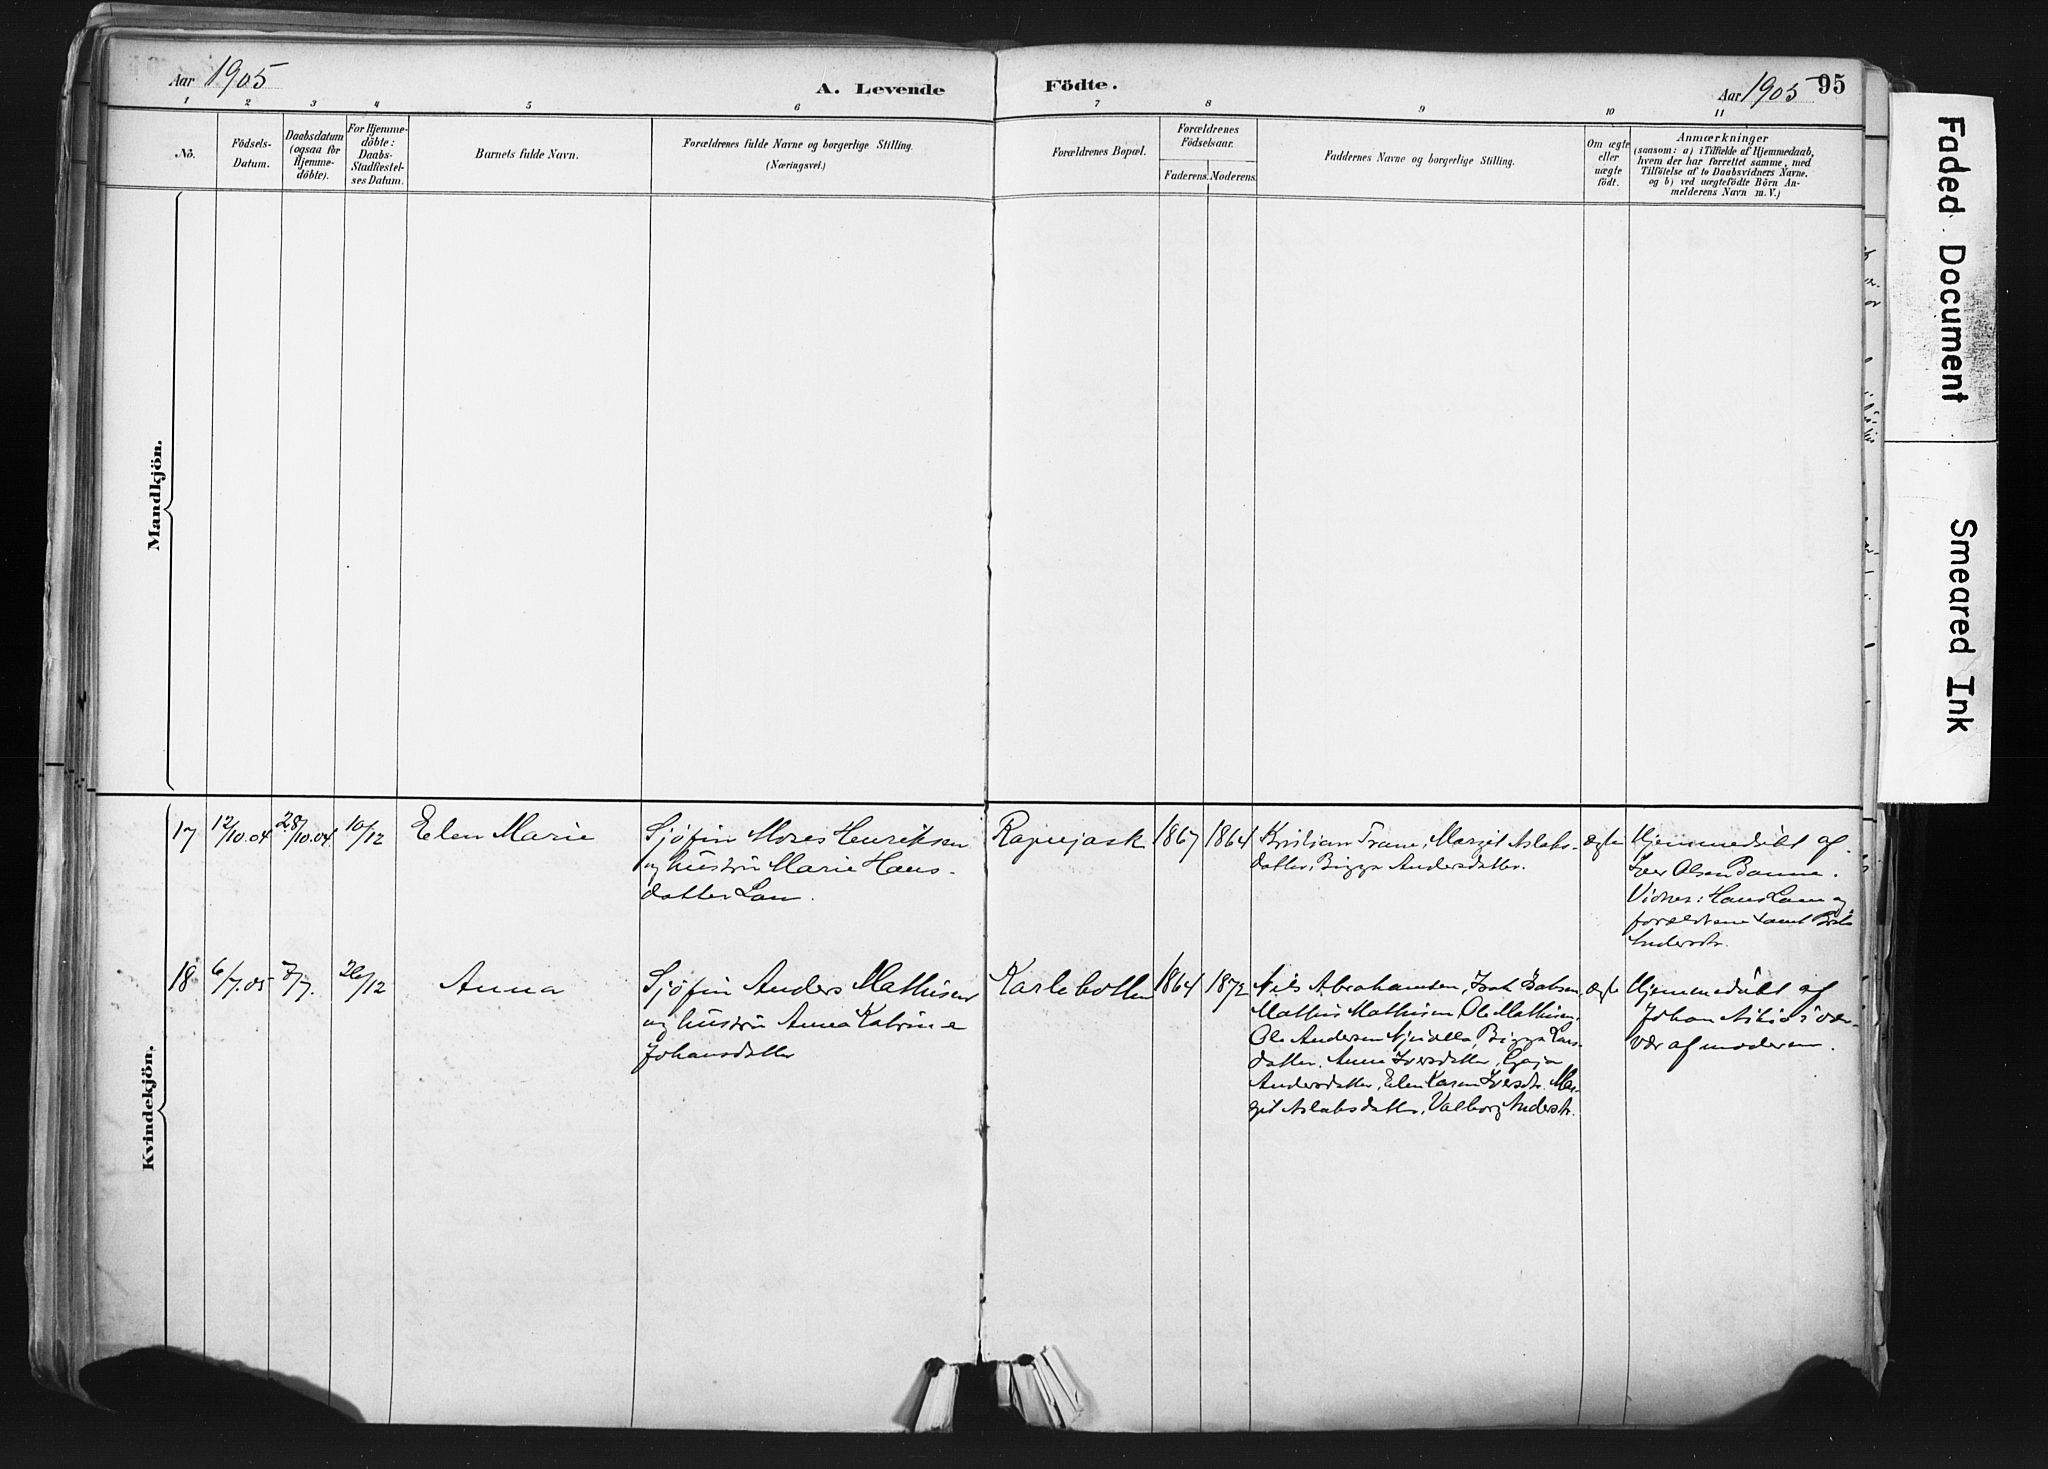 Aar 1905
A. Levende Födte.
Aar 1905 95
1 2 3 4 5 6 7 8 9 10 11
No.
Födsels-
Datum.
Daabsdatum
(ogsaa for
Hjemme-
döbte).
For Hjemme-
döbte:
Daabs-
Stadfæstel-
ses Datum.
Barnets fulde Navn.
Forældrenes fulde Navne og borgerlige Stilling.
(Næringsvei.)
Forældrenes Bopæl.
Forældrenes
Födselsaar.
Faderens. Moderens.
Faddernes Navne og borgerlige Stilling.
Om ægte
eller
uægte
födt.
Anmærkninger
(saasom: a) i Tilfælde af Hjemmedaab,
hvem der har forrettet samme, med
Tilföielse af to Daabsvidners Navne,
og b) ved uægtefödte Börn An-
melderens Navn m.V.)
Mandkjön.
Kvindekjön.
17 12/10.04 28/10.04 10/12 Elen Marie
Sjöfin Moses Henriksen
og hustru Marie Hans-
datter Lam.
1867 1864
Kristian Trane, Margit Aslaks-
datter, Bigga Andersdatter.
ægte
Hjemmedøbt af
Iver Olsen
Vidner: Hans Lam og
forældrene samt
Andersdtr.
18 6/7.05 7/7. 26/12 Anna
Sjöfin Anders Mathisen
og hustru Anna Katrine
Johansdatter
Karlebotten 1864 1872
Nils Abrahamsen,
Mathis Mathisen, Ole Mathisen,
Ole Andersen Bigga Lars-
datter, Anne Iversdatter,
Andersdatter, Elen Karen Iversdtr. Mar-
git Aslaksdatter, Valborg Andersdtr.
ægte
Hjemmedøbt af
Johan i over-
vær af moderen.
Faded Document
Smeared Ink